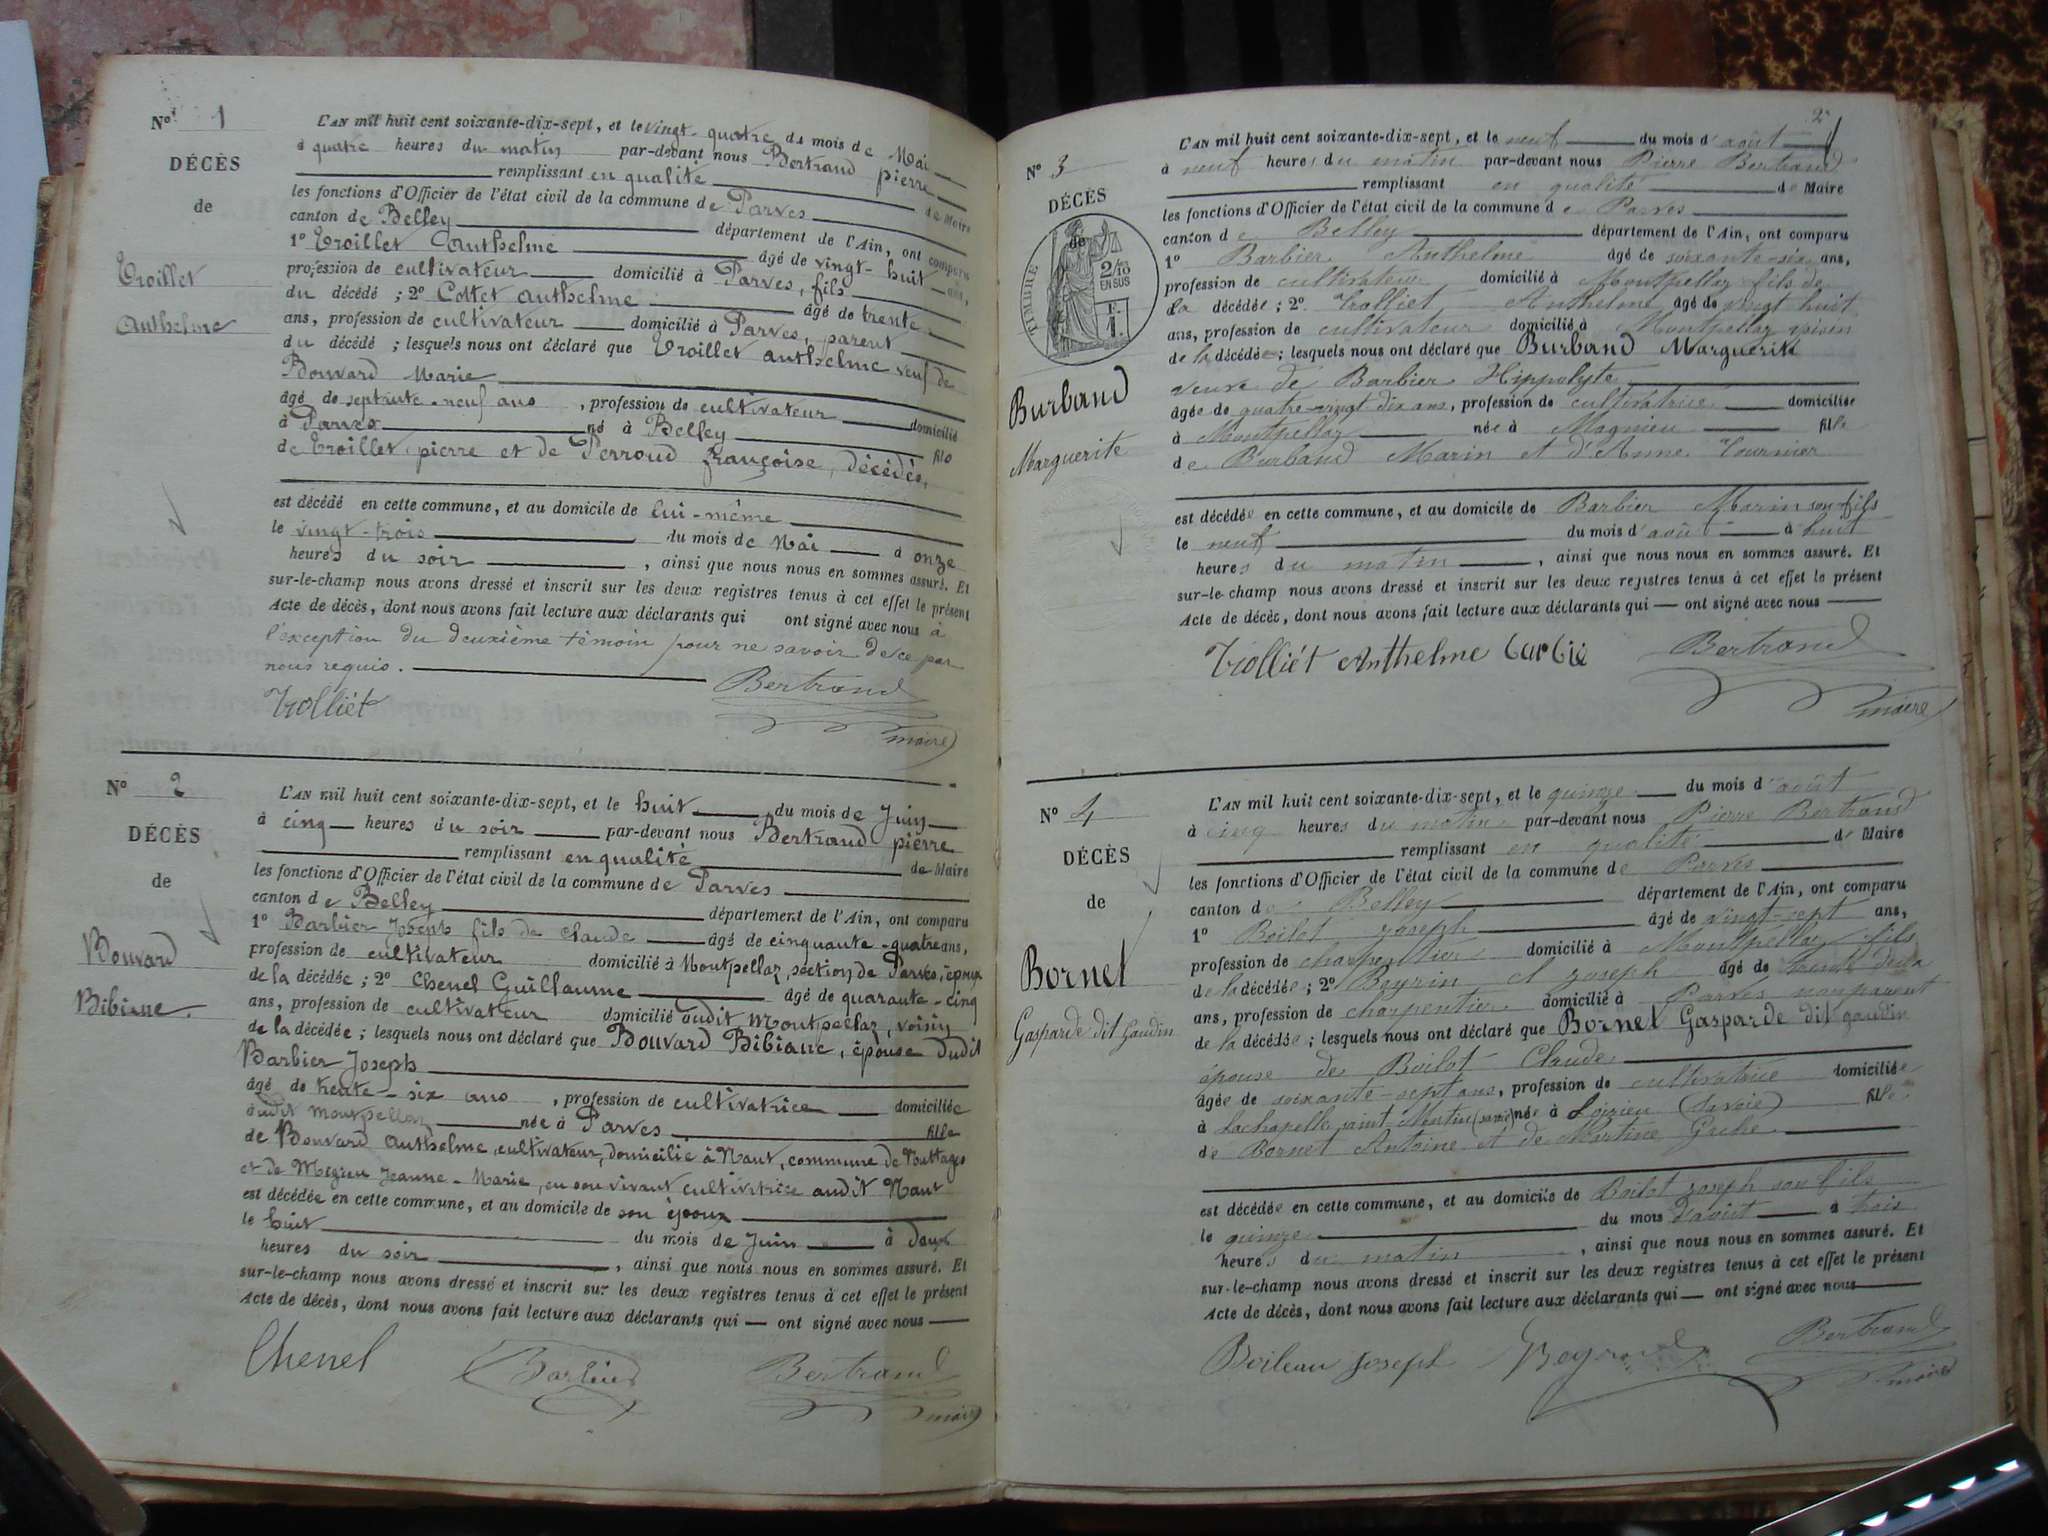 No 1
DÉCÈS
de
Troillet
Anthelme
L'AN mil huit cent soixante-dix-sept, et le vingt-quatre du mois de Mai
à quatre heures du matin par-devant nous Bertrand pierre
remplissant en qualité de Maire
les fonctions d'Officier de l'état civil de la commune de Parves
canton de Belley département de l'Ain, ont comparu
1o Troillet Anthelme âgé de vingt-huit ans,
profession de cultivateur domicilié à Parves, fils
du décédé ; 2o Cottet Anthelme âgé de trente
ans, profession de cultivateur domicilié à Parves, parent
du décédé ; lesquels nous ont déclaré que Troillet Anthelme veuf de
Bouvard Marie
âgé de septante-neuf ans, profession de cultivateur domicilié
à Parves né à Belley fils
de Troillet pierre et de Perroud françoise, décédés,
est décédé en cette commune, et au domicile de lui-même
le vingt-trois du mois de Mai à onze
heures du soir, ainsi que nous nous en sommes assuré. Et
sur-le-champ nous avons dressé et inscrit sur les deux registres tenus à cet effet le présent
Acte de décès, dont nous avons fait lecture aux déclarants qui ont signé avec nous à
l'exception du deuxième témoin pour ne savoir de ce par
nous requis.
Trolliét Bertrand
maire
No 2
DÉCÈS
de
Bouvard
Bibiane.
L'AN mil huit cent soixante-dix-sept, et le huit du mois de Juin
à cinq heures du soir par-devant nous Bertrand pierre
remplissant en qualité de Maire
les fonctions d'Officier de l'état civil de la commune de Parves
canton de Belley département de l'Ain, ont comparu
1o Barbier Joseph fils de Claude âgé de cinquante-quatre ans,
profession de cultivateur domicilié à Montpellaz, section de Parves, époux
de la décédée ; 2o Chenel Guillaume âgé de quarante-cinq
ans, profession de cultivateur domicilié audit Montpellaz, voisin
de la décédée ; lesquels nous ont déclaré que Bouvard Bibiane, épouse dudit
Barbier Joseph
âgé de trente-six ans, profession de cultivatrice domiciliée
audit Montpellaz née à Parves fille
de Bouvard Anthelme, cultivateur, domicilié à Nant, commune de
et de Jeanne-Marie, en son vivant cultivatrice audit Nant
est décédée en cette commune, et au domicile de son époux
le huit du mois de Juin à deux
heures du soir, ainsi que nous nous en sommes assuré. Et
sur-le-champ nous avons dressé et inscrit sur les deux registres tenus à cet effet le présent
Acte de décès, dont nous avons fait lecture aux déclarants qui — ont signé avec nous
Chenel Barbier Bertrand
maire
2
No 3
DÉCÈS
de
TIMBRE
2/10
EN SUS
F.
1.
Burband
Marguerite
L'AN mil huit cent soixante-dix-sept, et le neuf du mois d'août
à neuf heures du matin par-devant nous Pierre Bertrand
remplissant en qualité de Maire
les fonctions d'Officier de l'état civil de la commune de Parves
canton de Belley département de l'Ain, ont comparu
1o Barbier Anthelme âgé de soixante-six ans,
profession de cultivateur domicilié à Montpellaz fils de
la décédée ; 2o Trolliet Anthelme âgé de vingt huit
ans, profession de cultivateur domicilié à Montpellaz voisin
de la décédée ; lesquels nous ont déclaré que Burband Marguerite
veuve de Barbier Hippolyte
âgée de quatre-vingt dix ans, profession de cultivatrice domiciliée
à Montpellaz née à Magnieu fille
de Burband Marin et d'Anne Tournier
est décédée en cette commune, et au domicile de Barbier Marin son fils
le neuf du mois d'août à huit
heures du matin, ainsi que nous nous en sommes assuré. Et
sur-le-champ nous avons dressé et inscrit sur les deux registres tenus à cet effet le présent
Acte de décès, dont nous avons fait lecture aux déclarants qui — ont signé avec nous
Trolliét Anthelme barbié Bertrand
maire
No 4
DÉCÈS
de
Bornet
Gasparde dit Gaudin
L'AN mil huit cent soixante-dix-sept, et le quinze du mois d'août
à cinq heures du matin par-devant nous Pierre Bertrand
remplissant en qualité de Maire
les fonctions d'Officier de l'état civil de la commune de Parves
canton de Belley département de l'Ain, ont comparu
1o Boilot joseph âgé de vingt-sept ans,
profession de charpentier domicilié à Montpellaz fils
de la décédée ; 2o joseph âgé de trente deux
ans, profession de charpentier domicilié à Parves non parent
de la décédée ; lesquels nous ont déclaré que Bornet Gasparde dit gaudin
épouse de Boilot Claude
âgée de soixante-sept ans, profession de cultivatrice domiciliée
à Lachapelle saint Martin (savoie) née à Loizieu (Savoie) fille
de Bornet Antoine et de Martine
est décédée en cette commune, et au domicile de Boilot joseph son fils
le quinze du mois d'août à trois
heures du matin, ainsi que nous nous en sommes assuré. Et
sur-le-champ nous avons dressé et inscrit sur les deux registres tenus à cet effet le présent
Acte de décès, dont nous avons fait lecture aux déclarants qui — ont signé avec nous
Boileau joseph Bertrand
maire